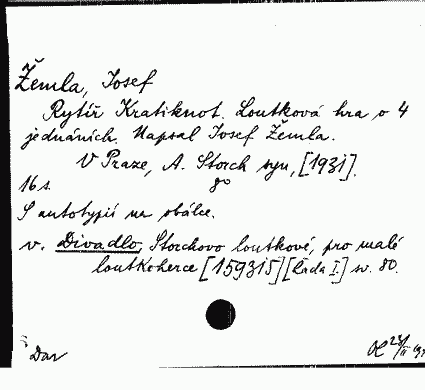 Žemla, Josef
Rytíř Kratiknot. Loutková hra o 4
jednáních. Napsal Josef Žemla.
V Praze, A. Storch syn, [1931].
16 s. 8°
S autotypií na obálce.
v. Divadlo, Storchovo loutkové, pro malé
loutkoherce [159315] [Řada I.] sv. 80.
Dar